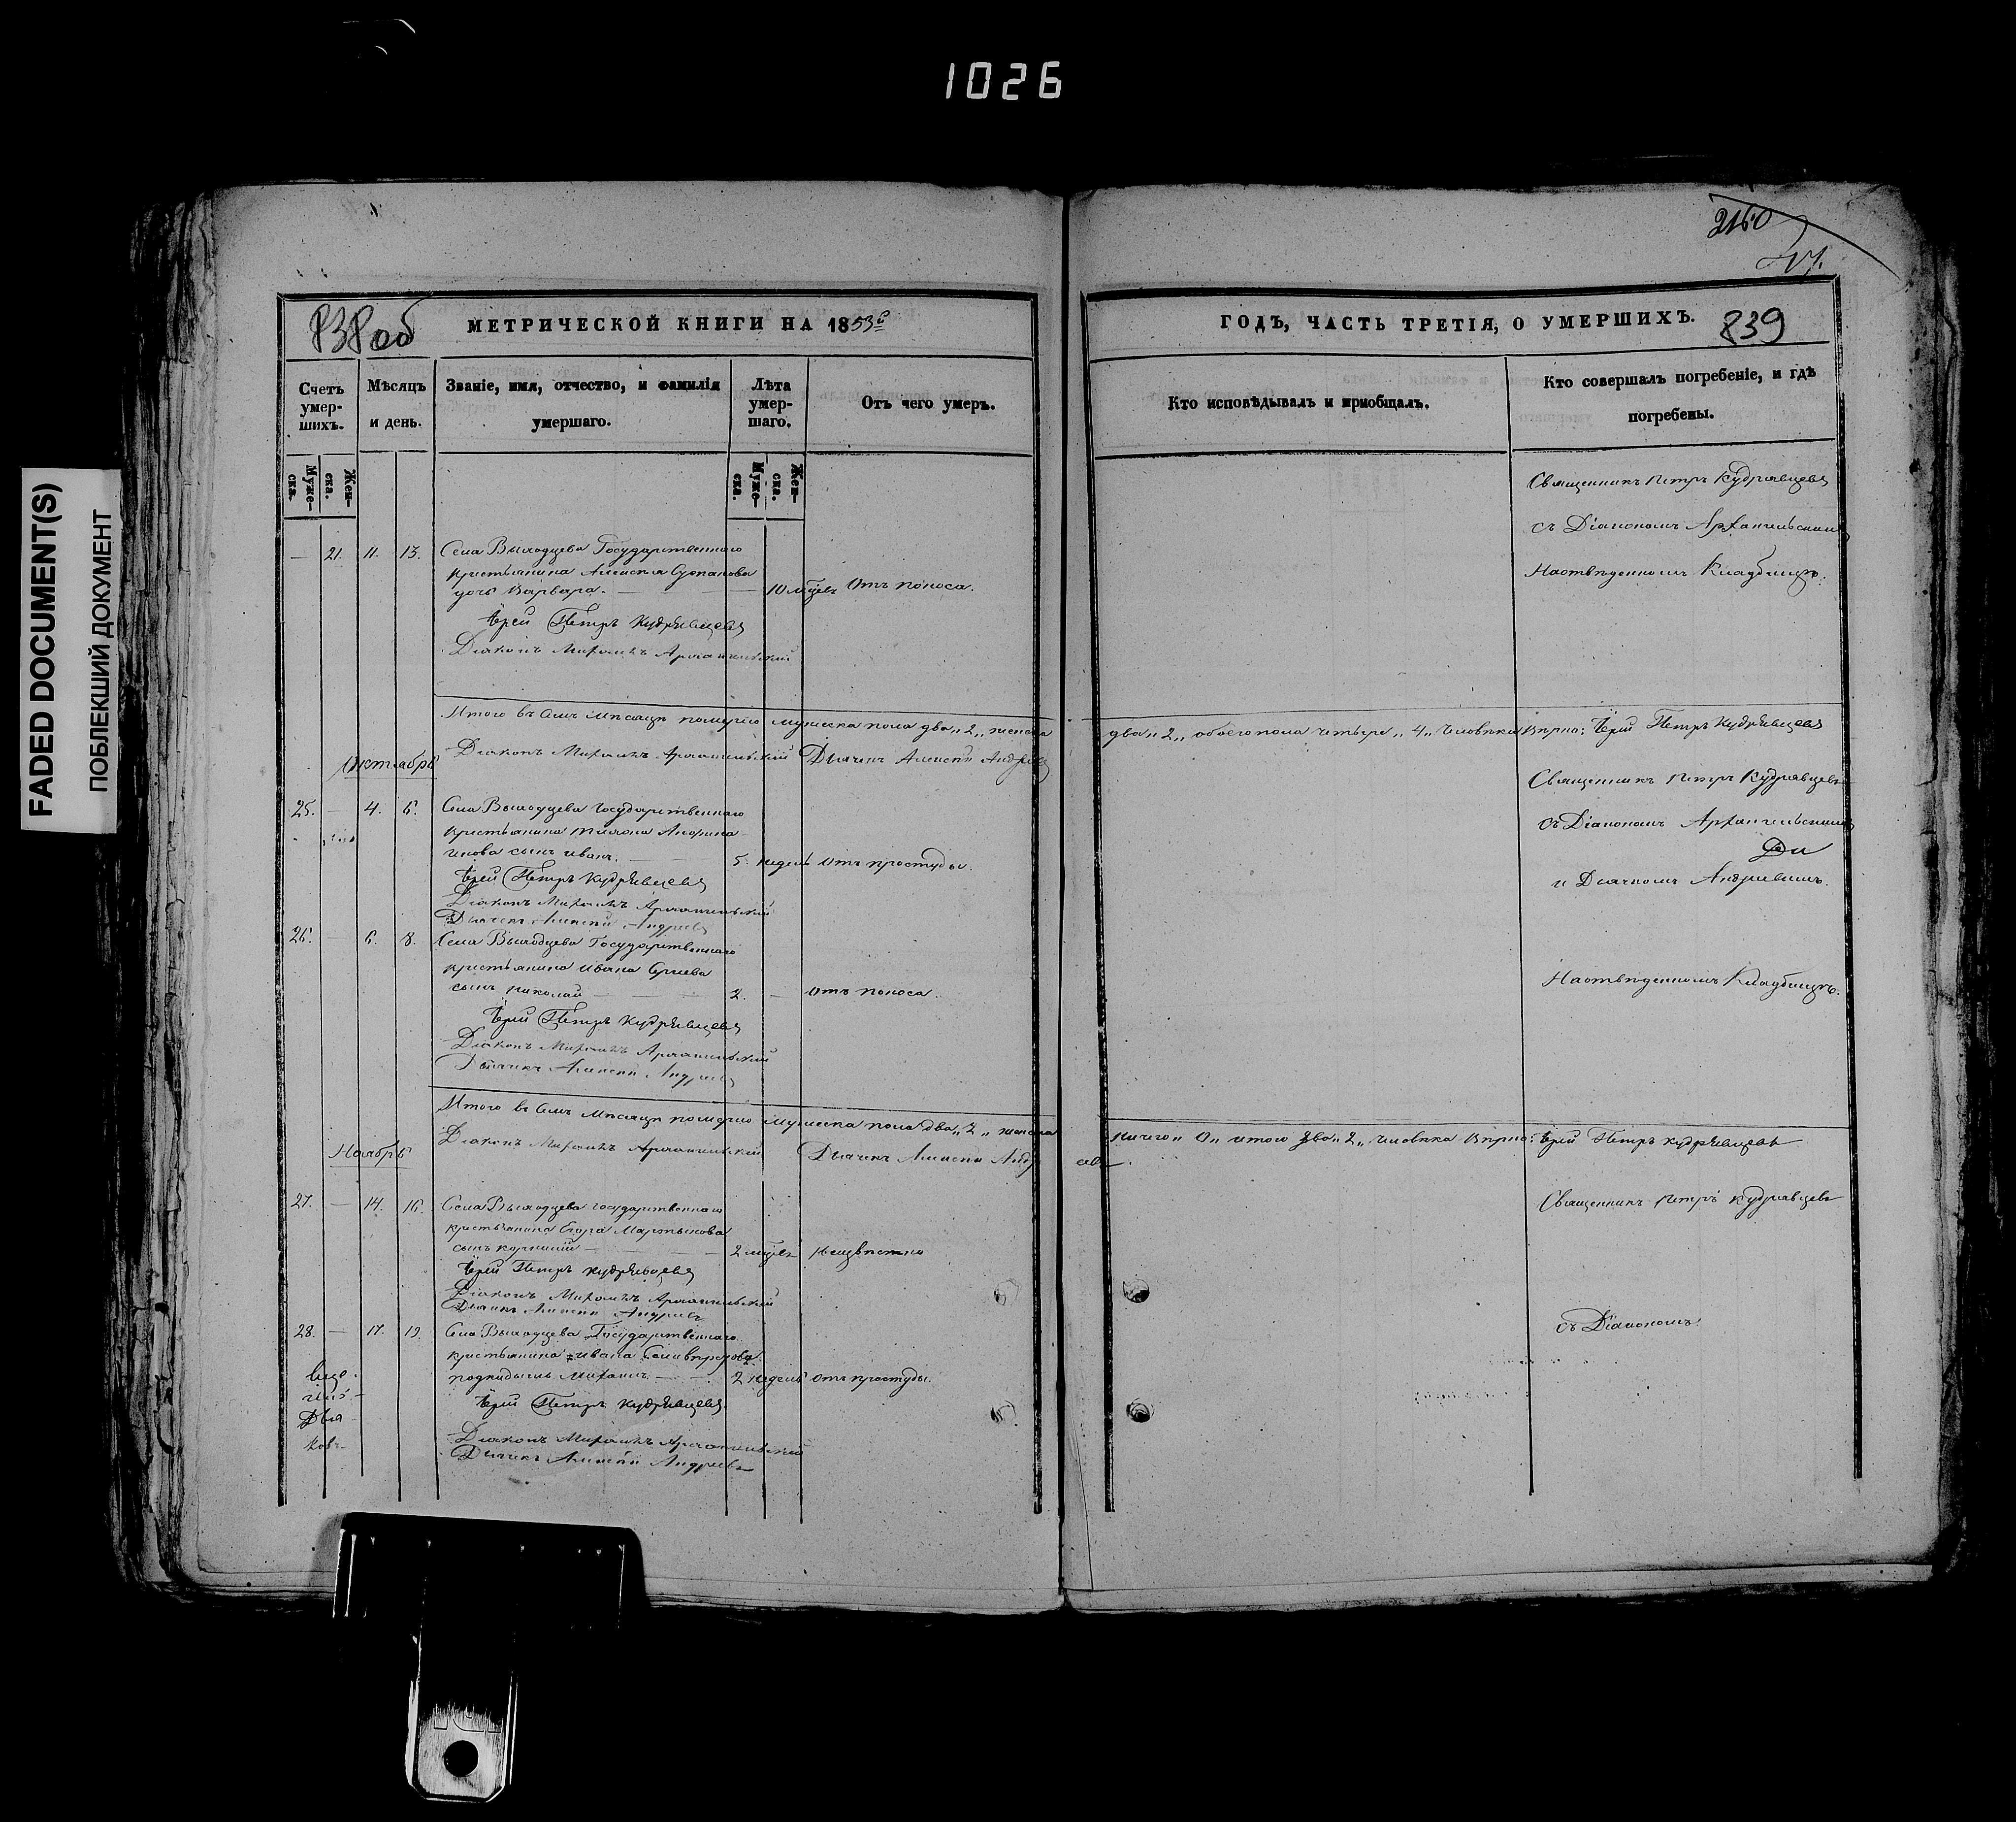 1026
FADED DOCUMENT(S)
ПОБЛЕКШИЙ ДОКУМЕНТ
838об
МЕТРИЧЕСКОЙ КНИГИ НА 1853й
Счетъ умер-шихъ.
Мѣсяцъ и день.
Званіе, имя, отчество, и фамилія умершаго.
Лѣта умер-шаго.
Отъ чего умеръ.
Муже-ска.
Жен-ска.
Муже-ска.
Жен-ска.
— 21. 11. 13. Села Выходцева Государственнаго
крестьянина Алексѣя
дочь Варвара. — — 10 мѣсяц. Отъ поноса.
Іерей Петръ Кудрявцевъ
Діаконъ Михаилъ Архангельскій
Итого въ семъ мѣсяцѣ померло мужеска пола два „2„ женска
Діаконъ Михаилъ Архангельскій Дьячекъ Алексѣй Андреевъ
Октябрь
25. — 4. 6. Села Выходцева Государственнаго
крестьянина
сынъ Иванъ. — 5. недель Отъ простуды.
Іерей Петръ Кудрявцевъ
Діаконъ Михаилъ Архангельскій
Дьячекъ Алексѣй Андреевъ
26. — 6. 8. Села Выходцева Государственнаго
крестьянина Ивана
сынъ Николай — — — 2. — Отъ поноса.
Іерей Петръ Кудрявцевъ
Діаконъ Михаилъ Архангельскій
Дьячекъ Алексѣй Андреевъ
Итого въ семъ мѣсяцѣ померло мужеска пола два „2„ женска
Діаконъ Михаилъ Архангельскій Дьячекъ Алексѣй Андр
Ноябрь
27. — 14. 16. Села Выходцева Государственнаго
крестьянина Егора Мартынова
сынъ — 2 мѣсяц. неизвѣстно
Іерей Петръ Кудрявцевъ
Діаконъ Михаилъ Архангельскій
Дьячекъ Алексѣй Андреевъ
28. — 17. 19. Села Выходцева Государственнаго
крестьянина Ивана
подкидышъ Михаилъ — — 2 недель отъ простуды.
Іерей Петръ Кудрявцевъ
Діаконъ Михаилъ Архангельскій
Дьячекъ Алексѣй Андреевъ
Дья-
ковъ
2160
ГОДЪ, ЧАСТЬ ТРЕТІЯ, О УМЕРШИХЪ.
839
Кто исповѣдывалъ и пріобщалъ.
Кто совершалъ погребеніе, и гдѣ погребены.
Священникъ Петръ Кудрявцевъ
съ Діакономъ Архангельскимъ
На отведенномъ Кладбищѣ.
два „2„ обоего пола четыре „4„ человѣка Вѣрно: Іерей Петръ Кудрявцевъ
Священникъ Петръ Кудрявцевъ
съ Діакономъ Архангельскимъ
Дн
и Дьячкомъ Андреевымъ.
На отведенномъ Кладбищѣ.
ничего „0„ итого два „2„ человѣка Вѣрно: Іерей Петръ Кудрявцевъ
еевъ.
Священникъ Петръ Кудрявцевъ
съ Діакономъ.